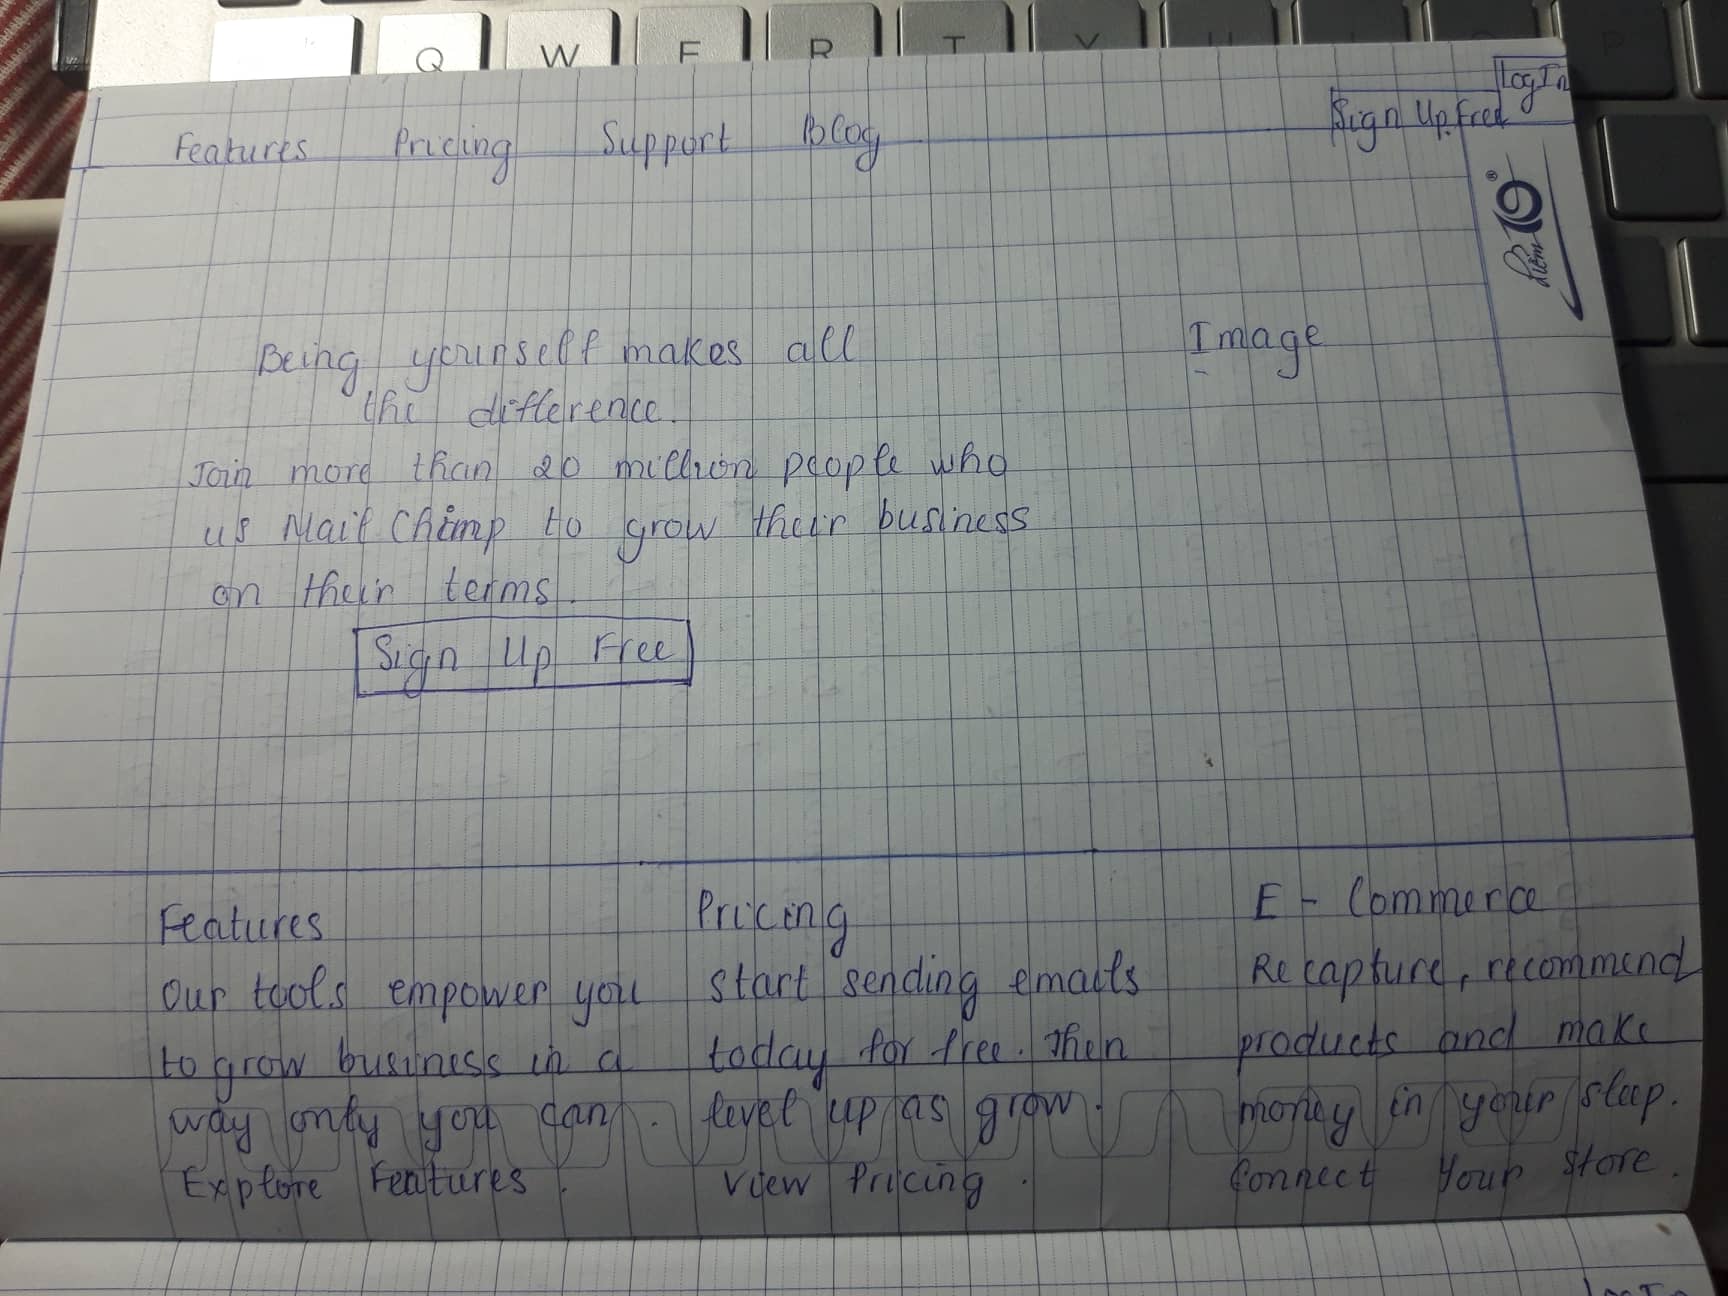 Q W E R T Y U I O P
Log In
Features Pricing Support Blog Sign Up Free
điểm 10 ®
Being yourself makes all
the difference.
Image
Join more than 20 million people who
us Mail Chimp to grow their business
on their terms.
Sign Up Free
Features
Our tools empower you
to grow business in a
way only you can.
Explore Features.
Pricing
Start sending emails
today for free. Then
level up as grow.
View Pricing.
E - Commerce
Recapture, recommend
products and make
money in your sleep.
Connect Your Store.
Log In